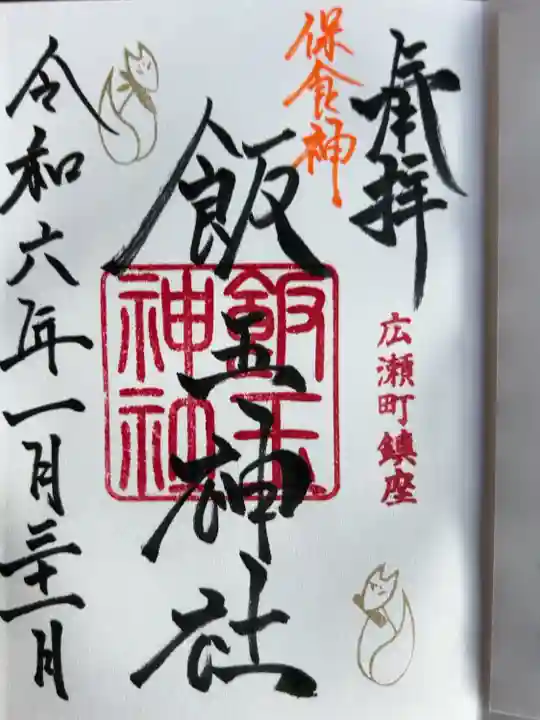 奉拝
広瀬町鎮座
保食神
飯玉神社
飯玉神社
令和六年一月三十一日